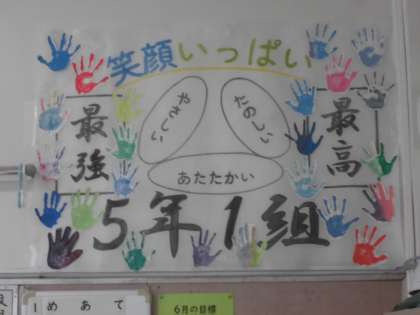 笑顔いっぱい
最強
やさしい
たのしい
最高
あたたかい
5年1組
1 めあて
6月の目標